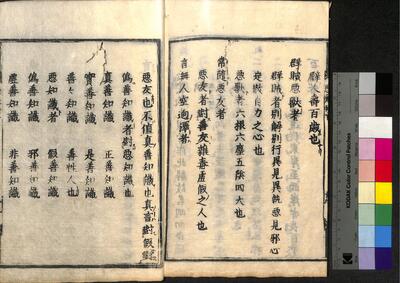 壽百歲也
群賊惡獸者
群賊者別解別行異見異執惡見邪心
定散自力之心也
惡獸者六根六塵五陰四大也
常隨惡友者
惡友者對善友雜毒虛假之人也
言無人空迥澤者
惡友也不値真善知識也真言對假
善知識者對惡知識也
真善知識 正善知識
實善知識 是善知識
善々知識 善性人也
惡知識者 假善知識
偽善知識 邪善知識
虛善知識 非善知識
KODAK Color Control Patches